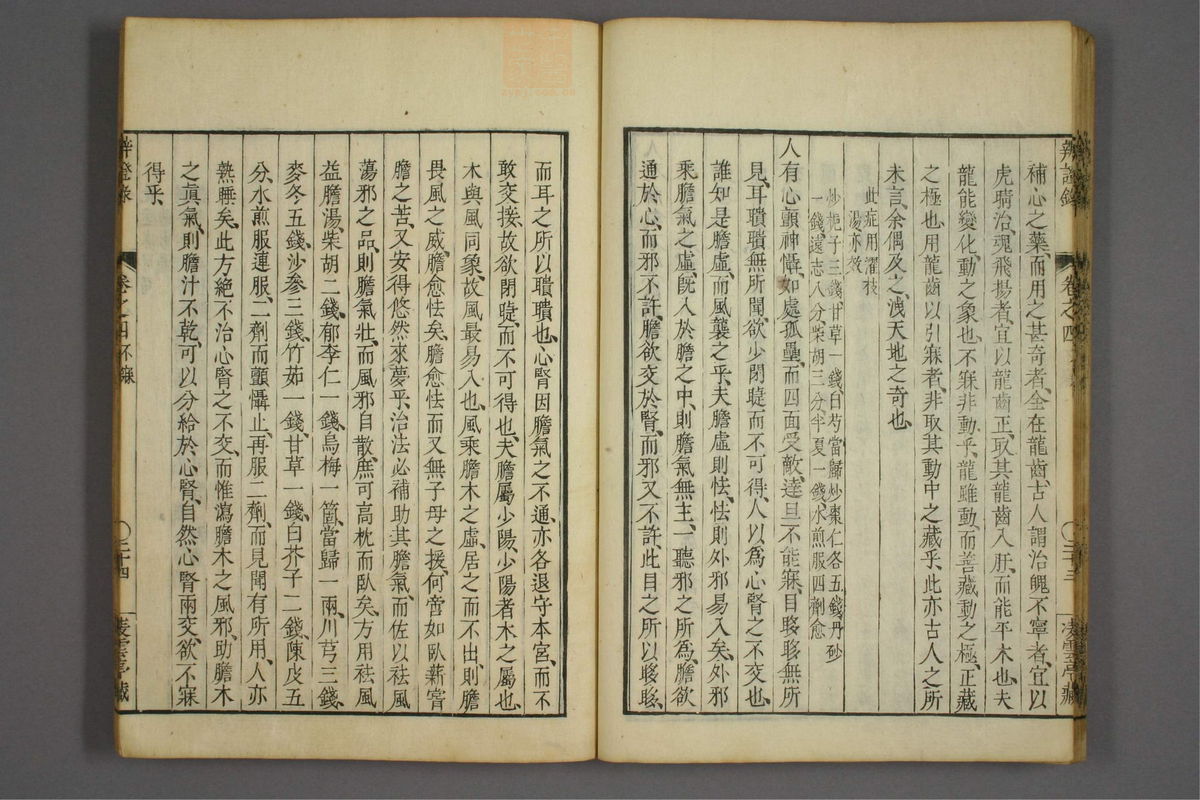 補心之藥而用之甚奇者、全在龍齒、古人謂治魄不寧者、宜以
虎睛、治魂飛揚者、宜以龍齒、正取其龍齒入肝、而能平木也、夫
龍能變化、動之象也、不寐非動乎、龍雖動、而善藏動之極、正藏
之極也、用龍齒以引寐者、非取其動中之藏乎、此亦古人之所
未言、余偶及之、洩天地之奇也、
此症用濯枝
湯亦效
炒梔子三錢甘草一錢白芍當歸炒棗仁各五錢丹砂
一錢遠志八分柴胡三分半夏一錢水煎服四劑愈
人有心顫神慴、如處孤壘、而四面受敵、達旦不能寐、目眵眵無所
見、耳聵聵無所聞、欲少閉睫而不可得、人以爲心腎之不交也、
誰知是膽虛、而風襲之乎、夫膽虛則怯、怯則外邪易入矣、外邪
乘膽氣之虛、既入於膽之中、則膽氣無主、一聽邪之所爲、膽欲
通於心、而邪不許、膽欲交於腎、而邪又不許、此目之所以眵眵、
辨證錄
卷之四
二十三
凌雲亭藏
而耳之所以聵聵也、心腎因膽氣之不通、亦各退守本宮、而不
敢交接、故欲閉睫、而不可得也、夫膽屬少陽、少陽者木之屬也、
木與風同象、故風最易入也、風乘膽木之虛、居之而不出、則膽
畏風之威、膽愈怯矣、膽愈怯而又無子母之援、何啻如臥薪嘗
膽之苦、又安得悠然來夢乎、治法必補助其膽氣、而佐以祛風
蕩邪之品、則膽氣壯、而風邪自散、庶可高枕而臥矣、方用祛風
益膽湯、柴胡二錢、郁李仁一錢、烏梅一箇、當歸一兩、川芎三錢、
麥冬五錢、沙參三錢、竹茹一錢、甘草一錢、白芥子二錢、陳皮五
分、水煎服連服二劑而顫慴止、再服二劑、而見聞有所用、人亦
熟睡矣、此方絶不治心腎之不交、而惟瀉膽木之風邪、助膽木
之眞氣、則膽汁不乾、可以分給於心腎、自然心腎兩交、欲不寐
得乎、
辨證錄
卷之四不寐
二十四
凌雲亭藏